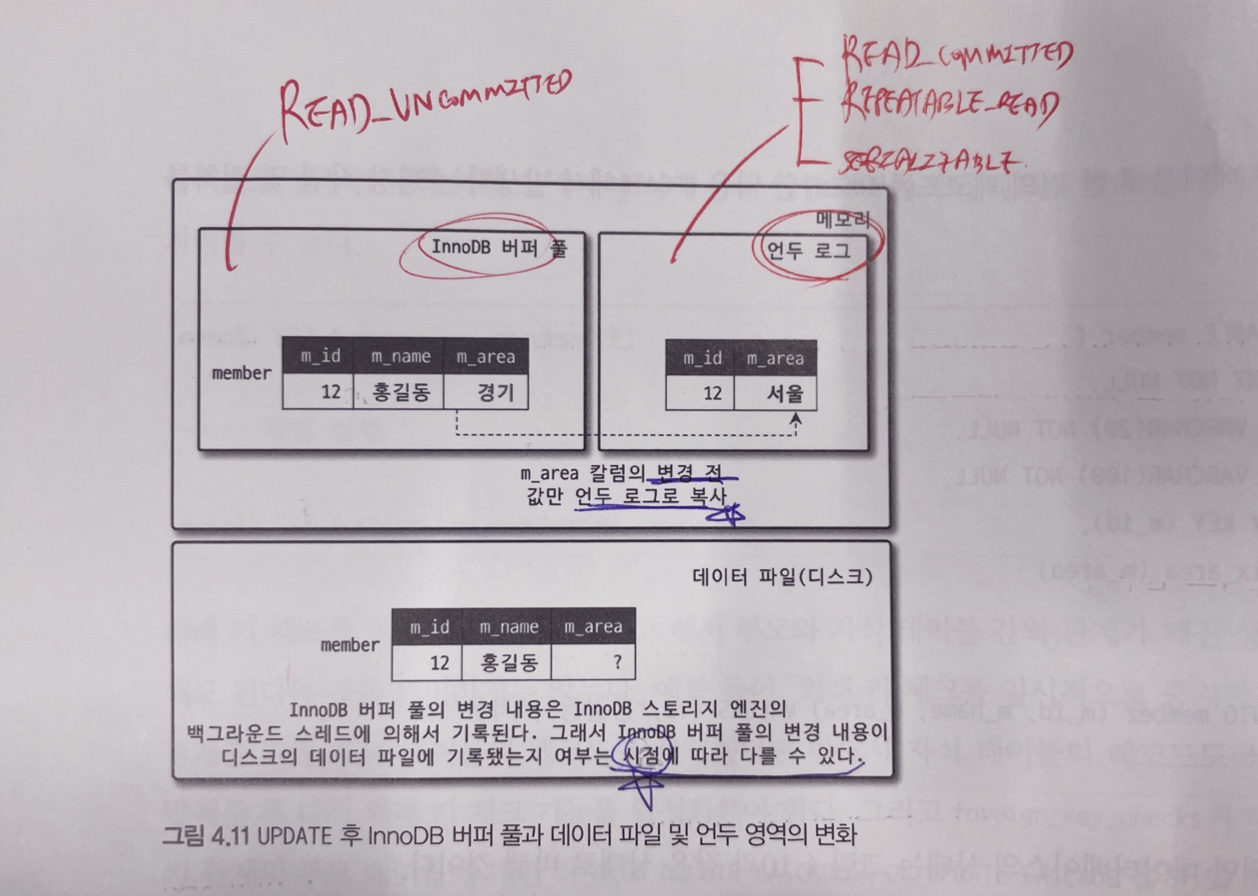 READ_UNCOMMITTED
READ_COMMITTED
REPEATABLE_READ
SERIALIZABLE
메모리
InnoDB 버퍼 풀
언두 로그
m_id m_name m_area
member
12 홍길동 경기
m_id m_area
12 서울
m_area 칼럼의 변경 전
값만 언두 로그로 복사
데이터 파일(디스크)
m_id m_name m_area
member
12 홍길동 ?
InnoDB 버퍼 풀의 변경 내용은 InnoDB 스토리지 엔진의
백그라운드 스레드에 의해서 기록된다. 그래서 InnoDB 버퍼 풀의 변경 내용이
디스크의 데이터 파일에 기록됐는지 여부는 시점에 따라 다를 수 있다.
그림 4.11 UPDATE 후 InnoDB 버퍼 풀과 데이터 파일 및 언두 영역의 변화